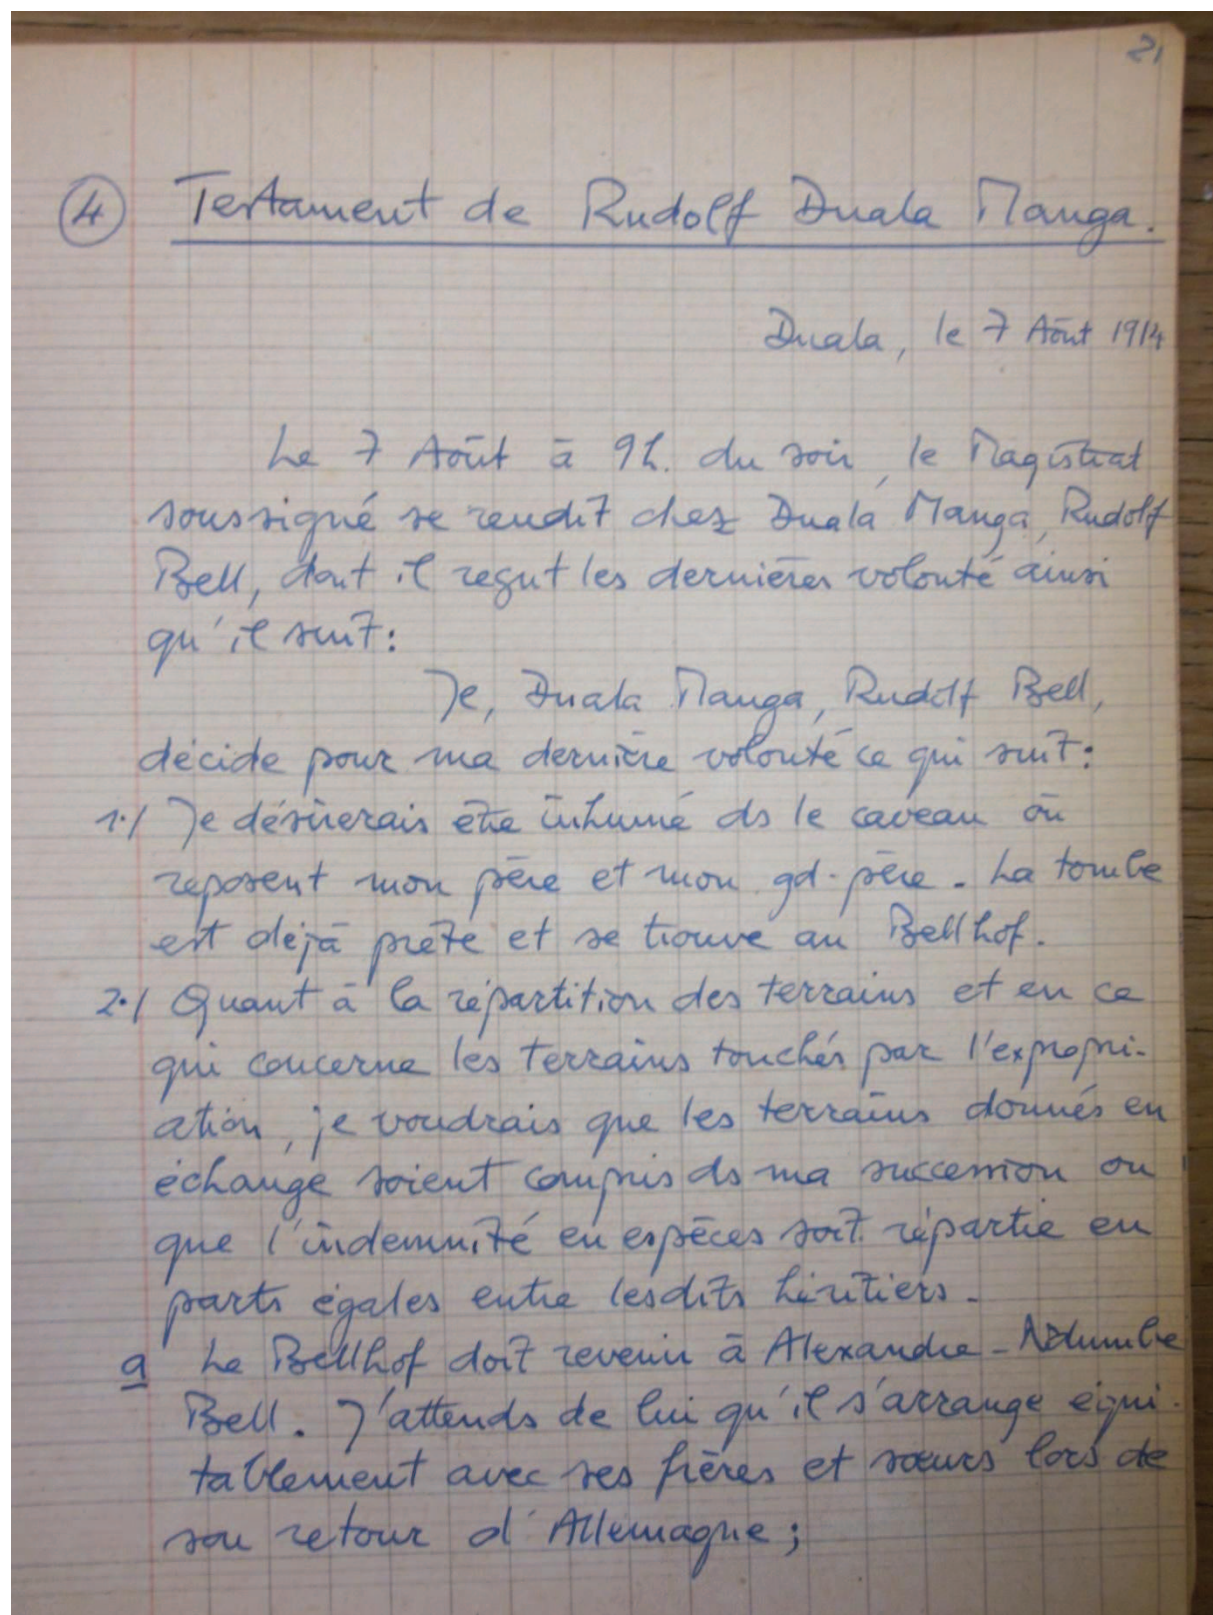 21
4 Testament de Rudolf Duala Manga.
Duala, le 7 Août 1914
Le 7 Août à 9h. du soir, le Magistrat
soussigné se rendit chez Duala Manga, Rudolf
Bell, dont il reçut les dernières volonté ainsi
qu'il suit:
Je, Duala Manga, Rudolf Bell,
décide pour ma dernière volonté ce qui suit:
1./ Je désirerais être inhumé ds le caveau où
reposent mon père et mon gd-père. La tombe
est déjà prête et se trouve au Bellhof.
2./ Quant à la répartition des terrains et en ce
qui concerne les terrains touchés par l'expropri-
ation, je voudrais que les terrains donnés en
échange soient compris ds ma succession ou
que l'indemnité en espèces soit répartie en
parts égales entre lesdits héritiers.
a Le Bellhof doit revenir à Alexandre-Ndumbe
Bell. J'attends de lui qu'il s'arrange équi-
tablement avec ses frères et sœurs lors de
son retour d'Allemagne;